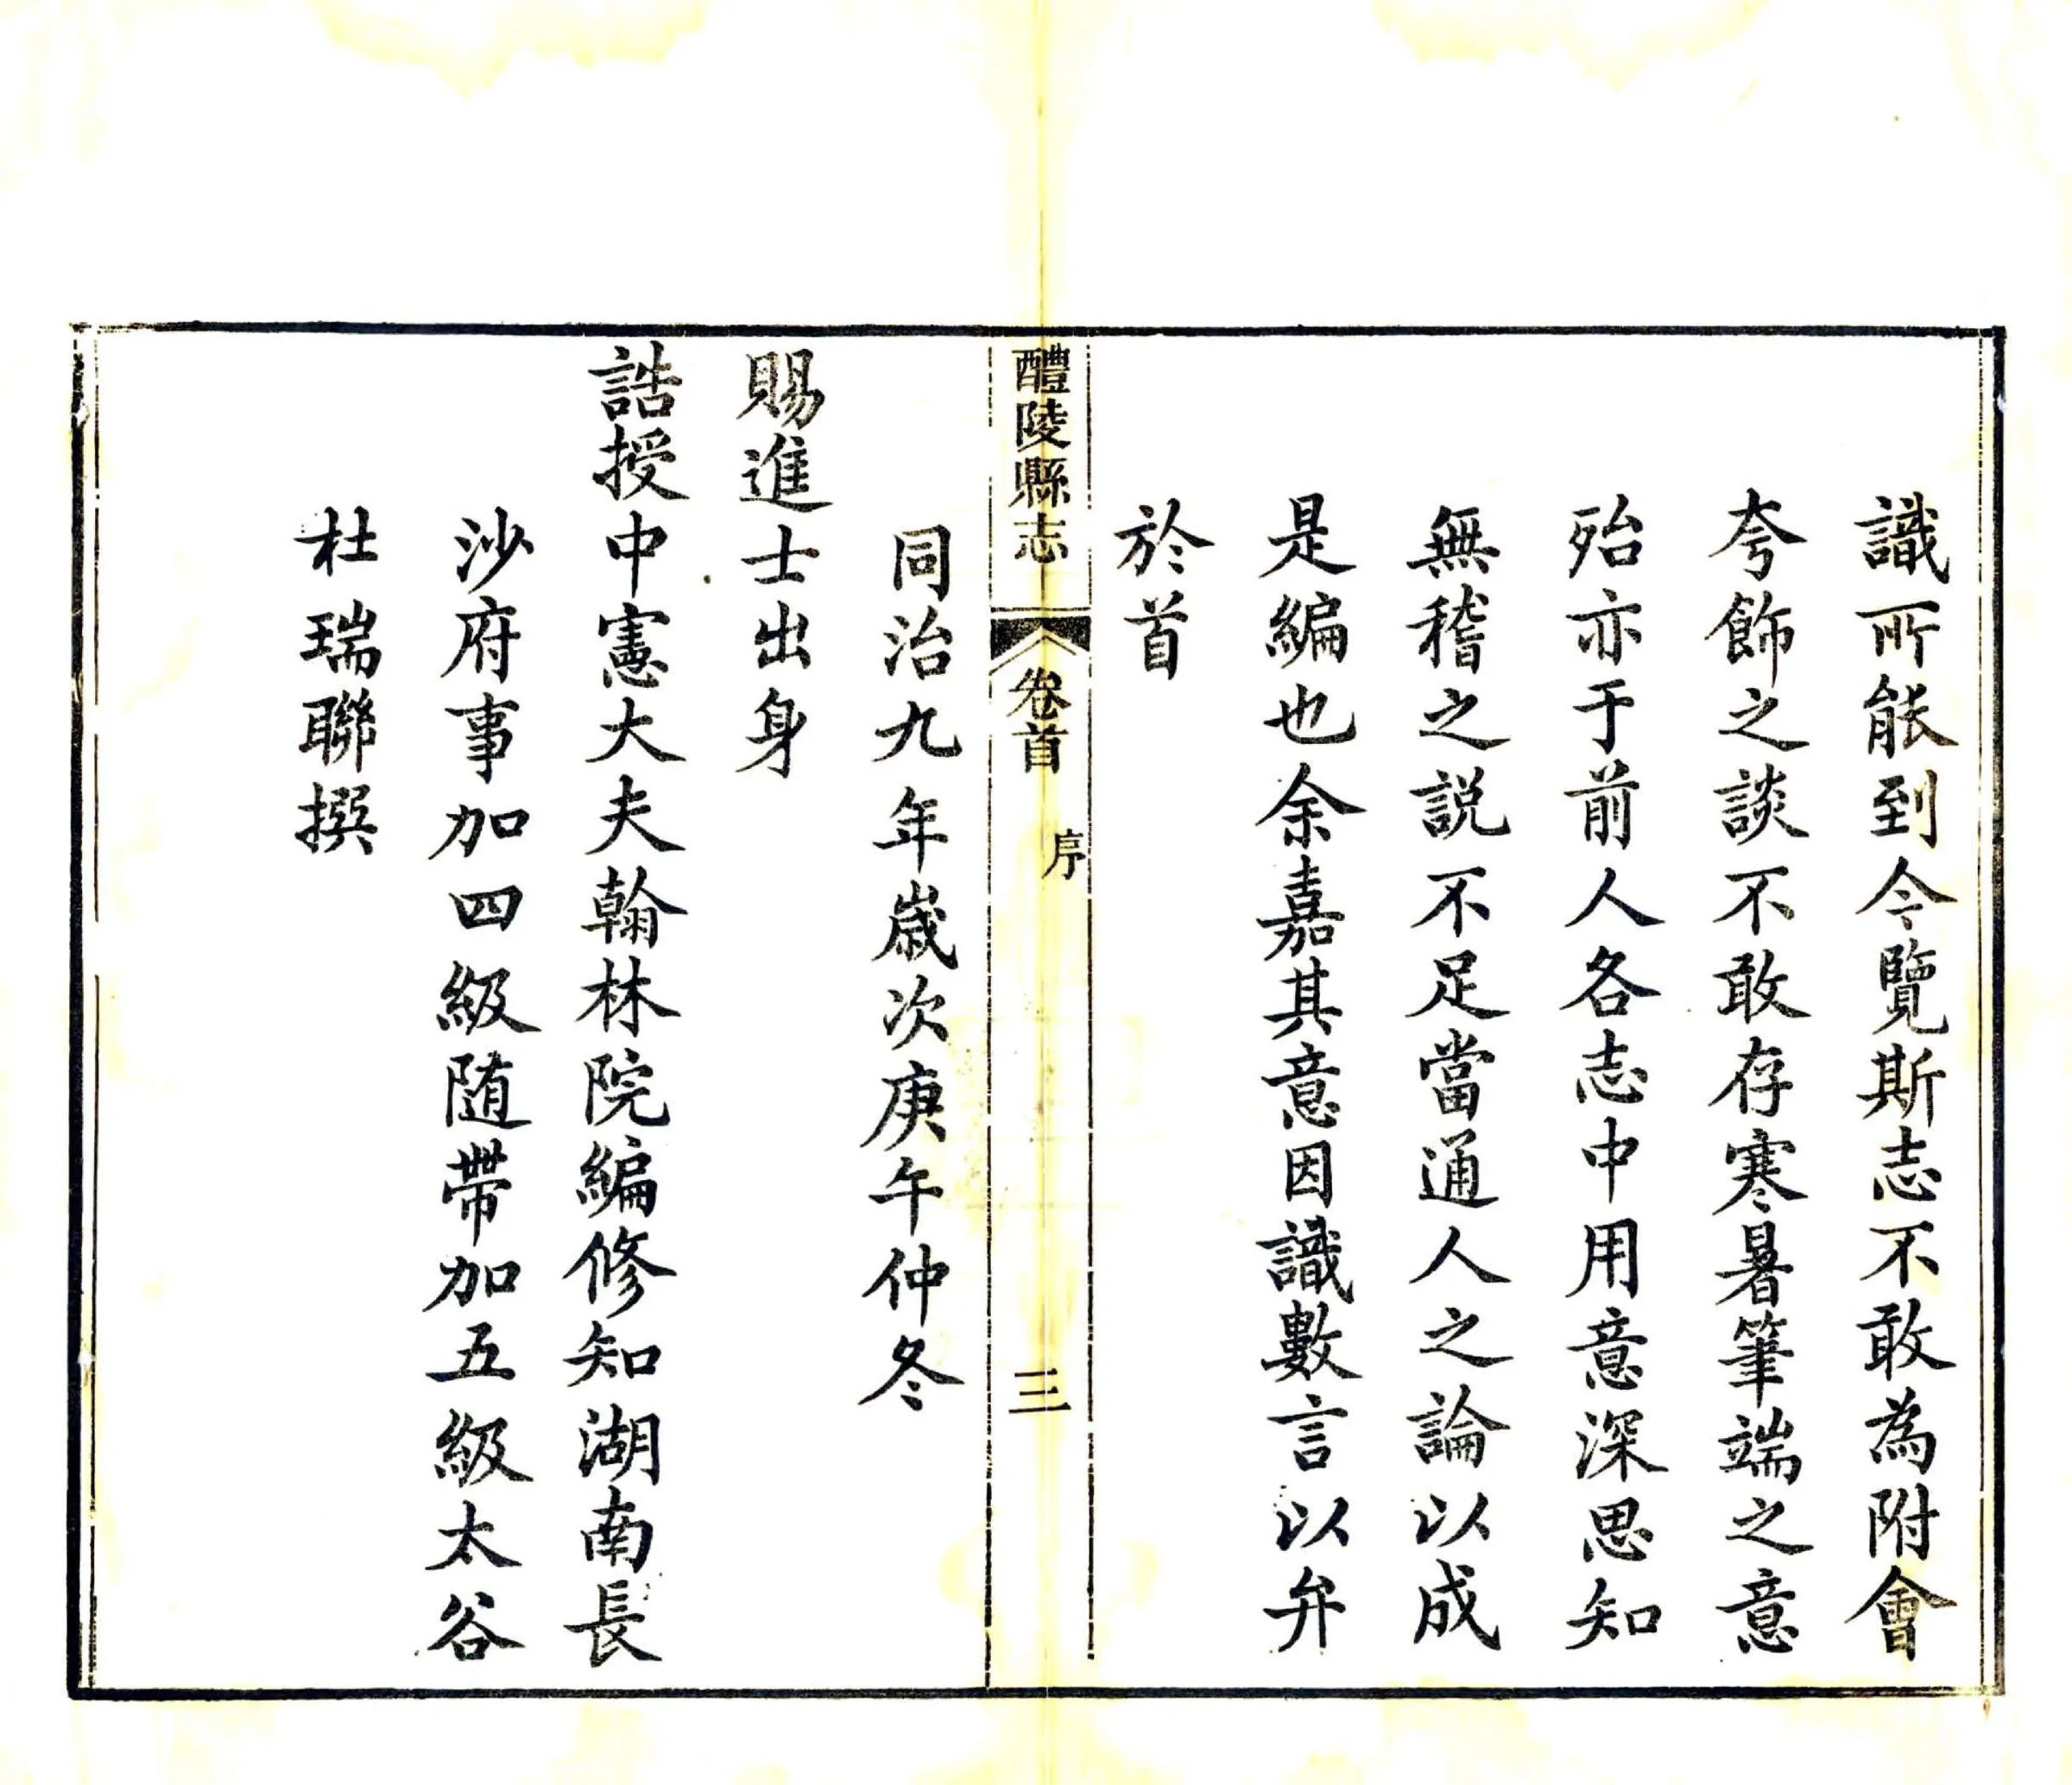 識所能到今覽斯志不敢為附會
夸飾之談不敢存寒暑筆端之意
殆亦于前人各志中用意深思知
無稽之説不足當通人之論以成
是編也余嘉其意因識數言以弁
於首
醴陵縣志
卷首
序
三
同治九年歲次庚午仲冬
賜進士出身
誥授中憲大夫翰林院編修知湖南長
沙府事加四級随帶加五級太谷
杜瑞聯撰